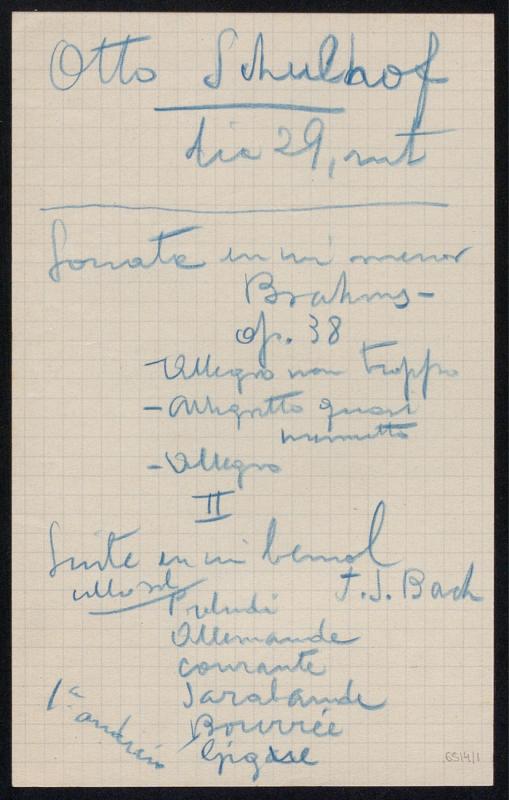 Otto Schulhof
dia 29, nit
Sonata en mi menor
Brahms-
op. 38
-Allegro non troppo
-Allegretto quasi
minuetto
-Allegro
II
Suite en mi bemol
cello sol
J. S. Bach
Preludi
Allemande
courante
Sarabande
Bourrée
Gigue
1ª audició
6514/1